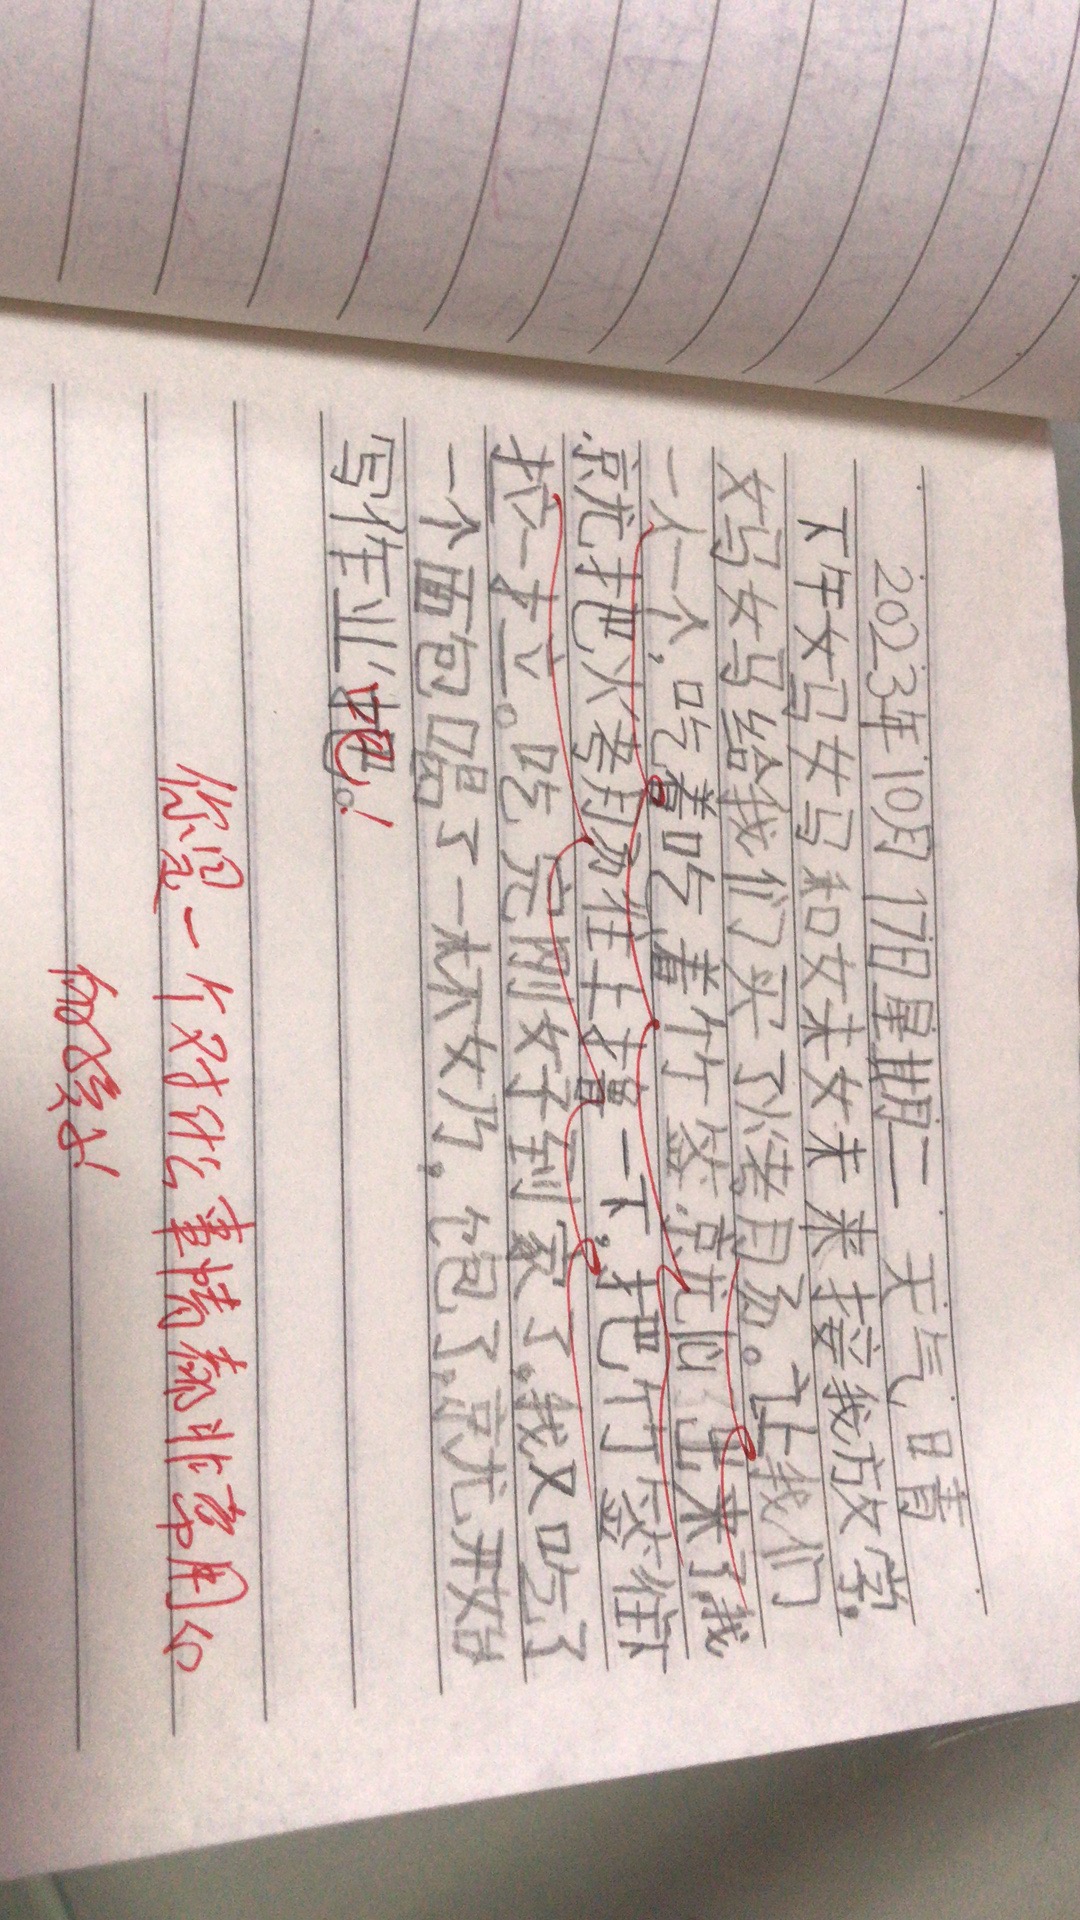 2023年10月17日星期二 天气晴
下午妈妈和妹妹来接我放学,
妈妈给我们买了小烤肠。让我们
一人一个,吃着吃着竹签就出来了我
就把烤肠往上提一下,把竹签往下
拉一拉。吃完刚好到家了,我又吃了
一个面包喝了一杯奶,饱了,就开始
写作业吧。!
你是一个对什么事情都非常用心
的孩子!